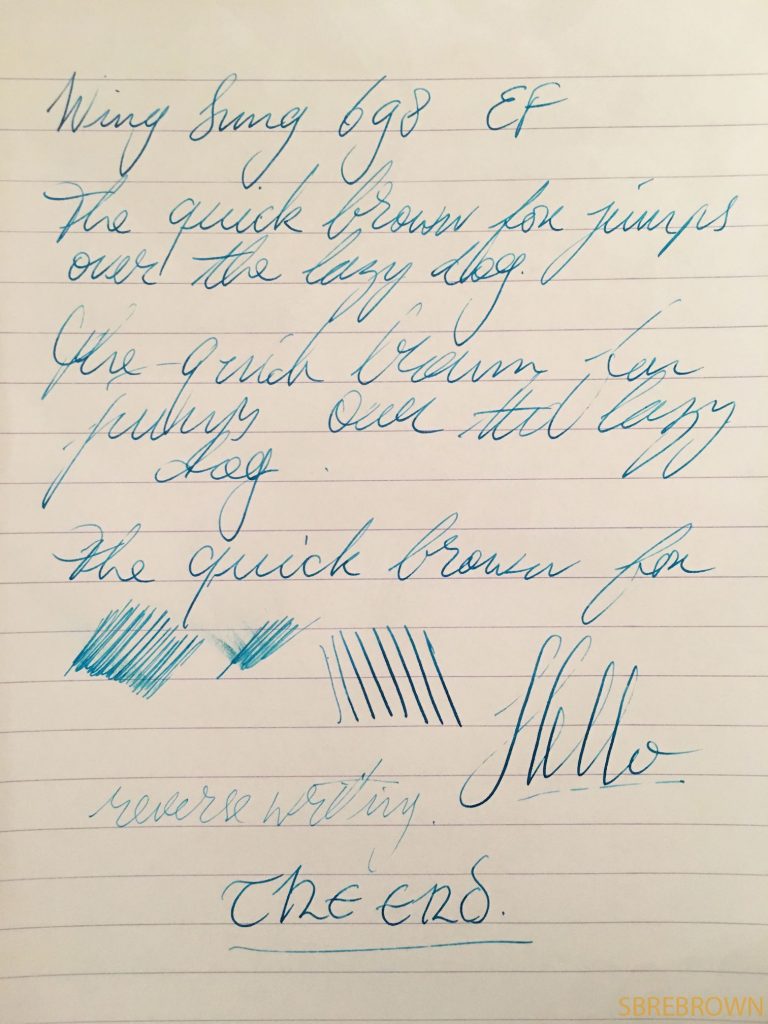 Wing Sung 698 EF
The quick brown fox jumps
over the lazy dog.
The quick brown fox
jumps over the lazy
dog.
The quick brown fox
Hello
reverse writing.
The end.
SBREBROWN